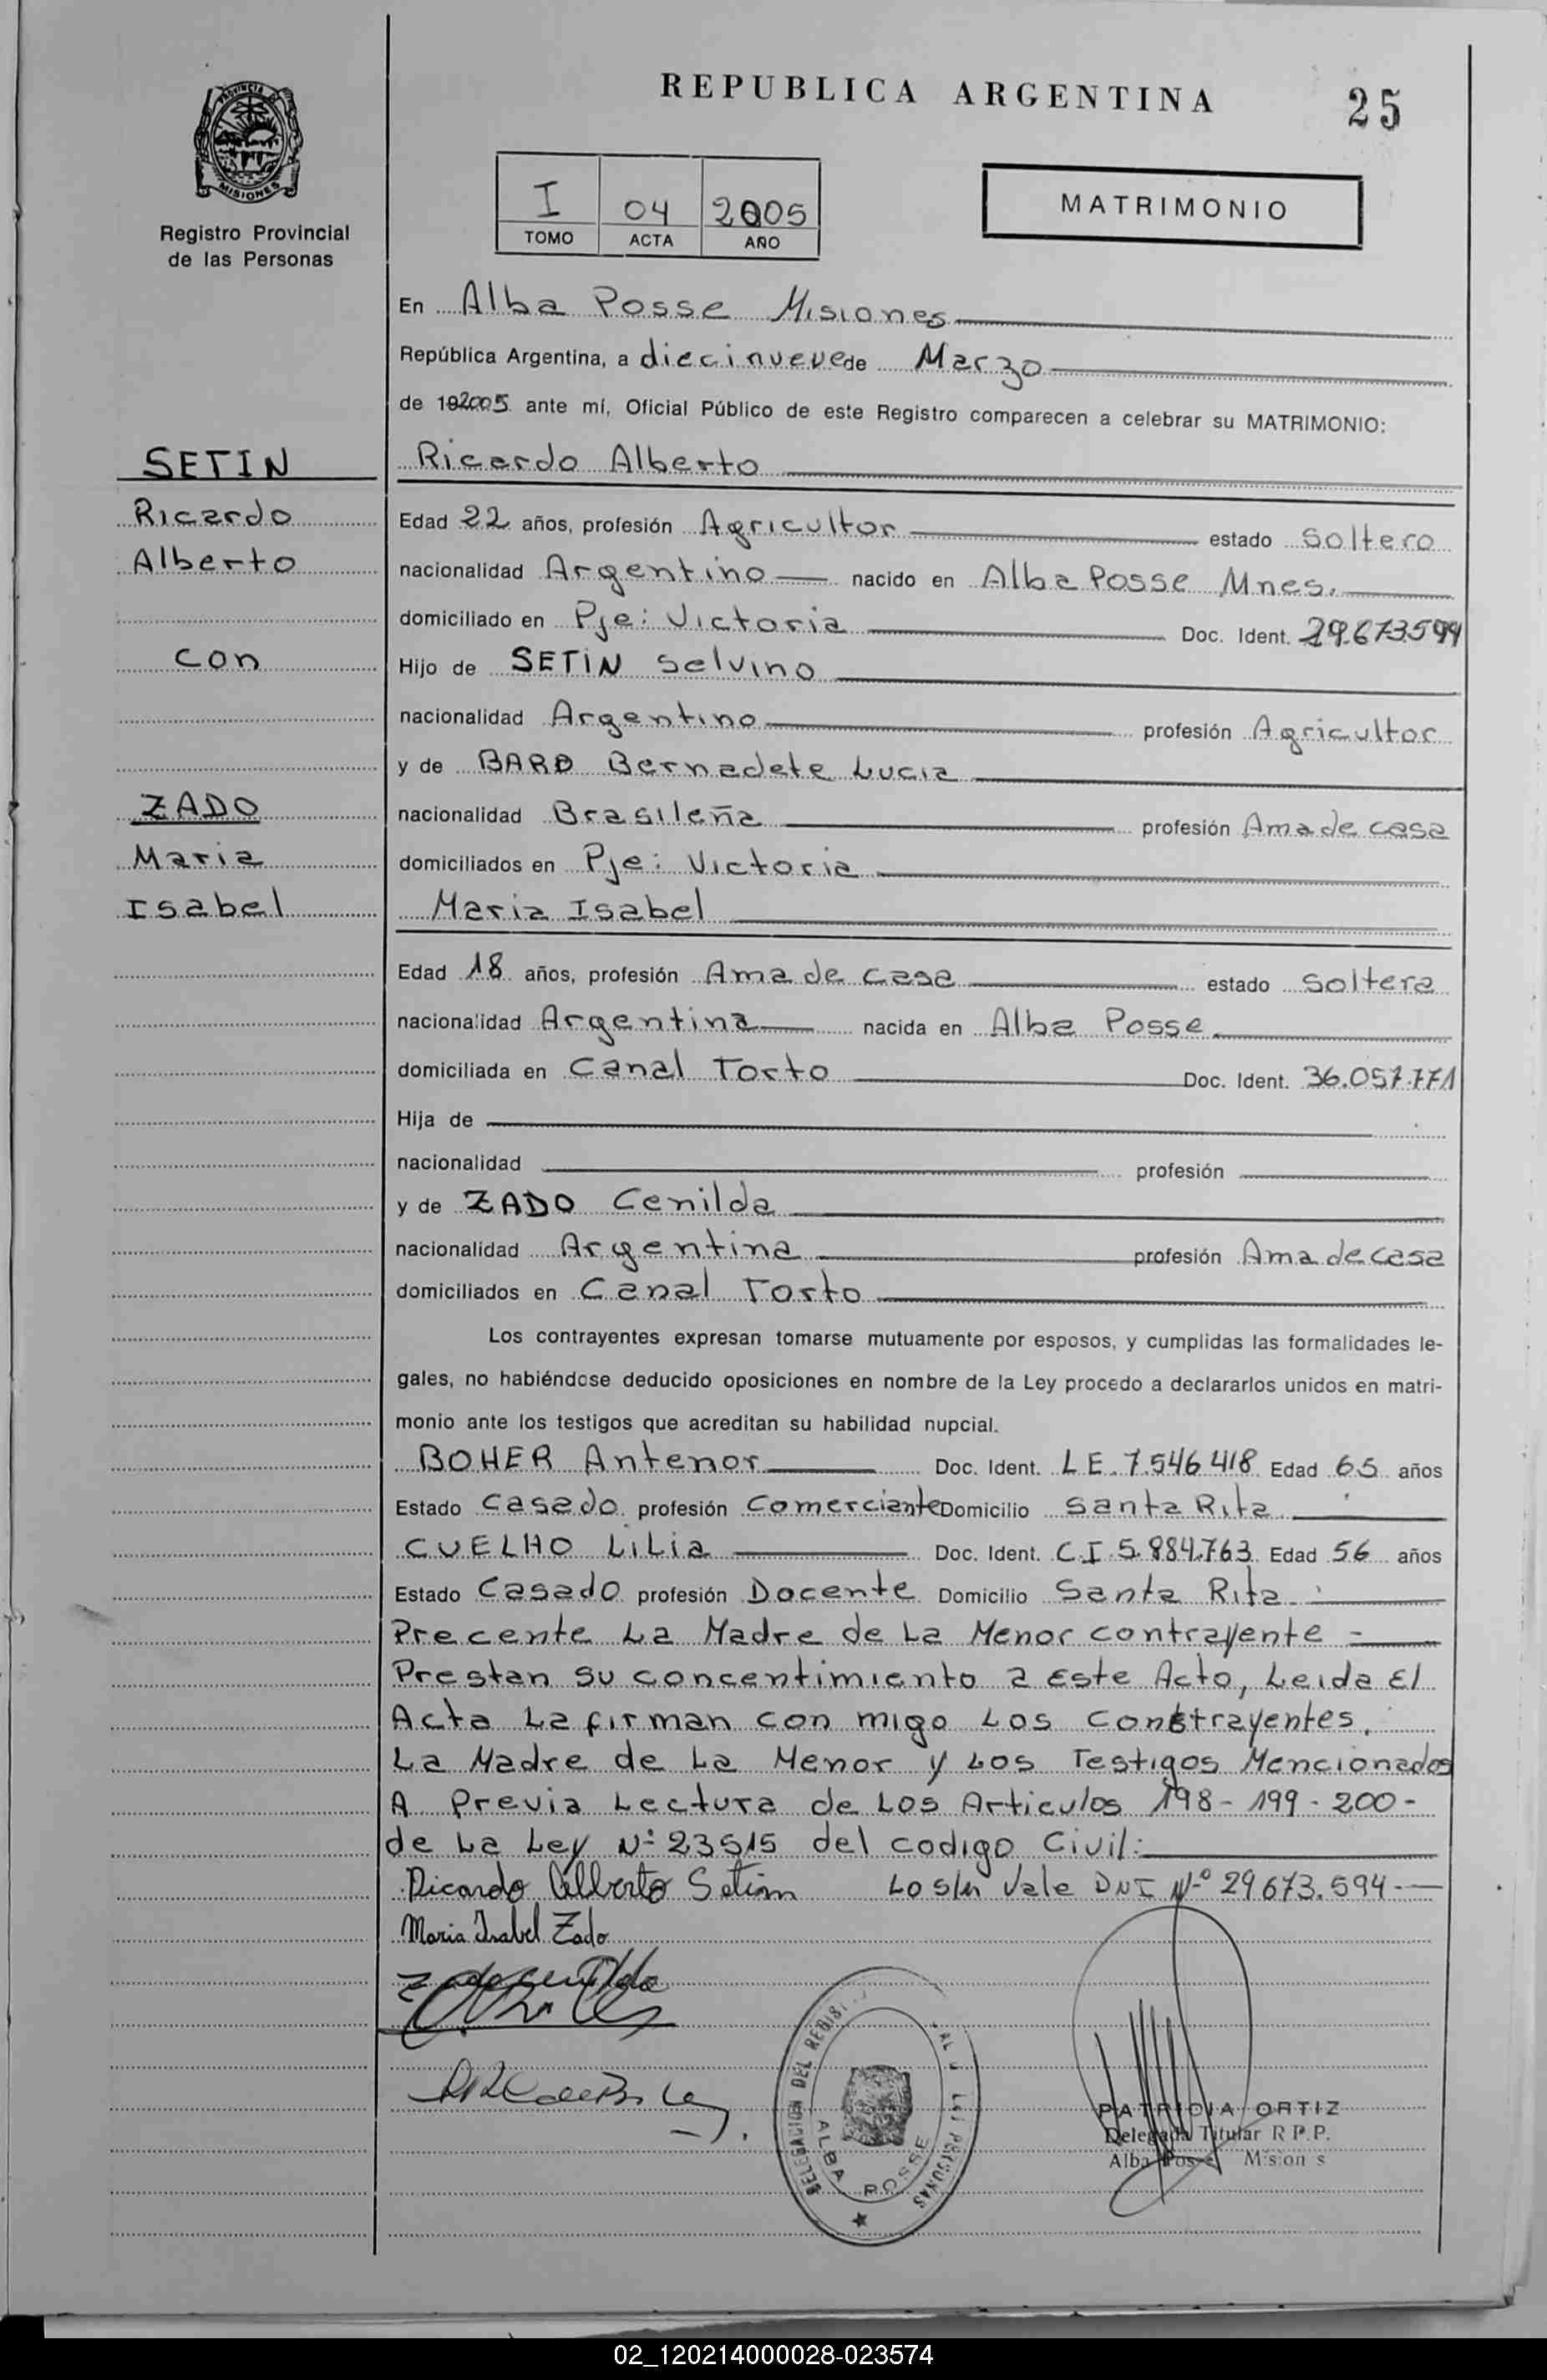 REPUBLICA ARGENTINA
25
MISIONES
Registro Provincial
de las Personas
I 04 2005
TOMO ACTA AÑO
MATRIMONIO
En Alba Posse Misiones
República Argentina, a diecinueve de Marzo
de 192005 ante mí, Oficial Público de este Registro comparecen a celebrar su MATRIMONIO:
SETIN Ricardo Alberto
Ricardo Edad 22 años, profesión Agricultor estado Soltero
Alberto nacionalidad Argentino nacido en Alba Posse Mnes.
domiciliado en Pje: Victoria Doc. Ident. 29.673.594
con Hijo de SETIN Selvino
nacionalidad Argentino profesión Agricultor
y de BARD Bernadete Lucia
ZADO nacionalidad Brasileña profesión Ama de casa
Maria domiciliados en Pje: Victoria
Isabel Maria Isabel
Edad 18 años, profesión Ama de casa estado Soltera
nacionalidad Argentina nacida en Alba Posse
domiciliada en Canal Torto Doc. Ident. 36.057.771
Hija de
nacionalidad profesión
y de ZADO Cenilda
nacionalidad Argentina profesión Ama de casa
domiciliados en Canal Torto
Los contrayentes expresan tomarse mutuamente por esposos, y cumplidas las formalidades le-
gales, no habiéndose deducido oposiciones en nombre de la Ley procedo a declararlos unidos en matri-
monio ante los testigos que acreditan su habilidad nupcial.
BOHER Antenor Doc. Ident. LE. 7.546 418 Edad 65 años
Estado Casado profesión Comerciante Domicilio Santa Rita
CUELHO LiLia Doc. Ident. C.I 5.884.763 Edad 56 años
Estado Casado profesión Docente Domicilio Santa Rita
Precente La Madre de La Menor contrayente =
Prestan su concentimiento a Este Acto, Leida El
Acta La firman con migo Los Constrayentes,
La Madre de La Menor y Los Testigos Mencionados
A Previa Lectura de Los Articulos 198 - 199 - 200 -
de La Ley Nº 23515 del codigo Civil:
Ricardo Alberto Setim Lo S/R Vale DNI Nº 29673.594
Maria Isabel Zado
Zado Cenilda
DELEGACION DEL REGIST AL LAS PERSONAS
ALBA POSSE
PATRICIA ORTIZ
Delegada Titular R.P.P.
Alba Posse Misiones
02_120214000028-023574